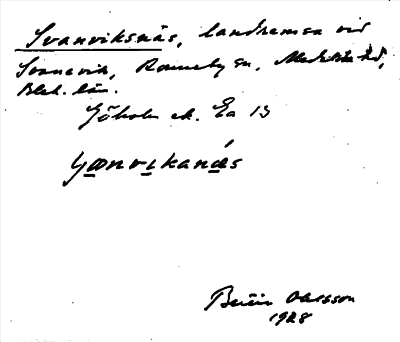 Svanviksnäs, landremsa vid
Svanevik, Ronneby sn, Medelsta hd,
Blek. län.
Göholm ek. Ea 13
Bririn Olsson
1928